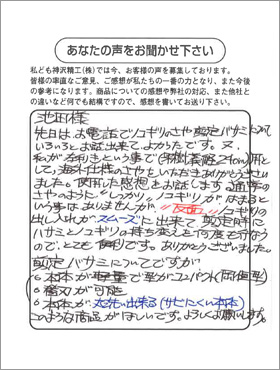 あなたの声をお聞かせ下さい
私ども神沢精工(株)では今、お客様の声を募集しております。
皆様の率直なご意見、ご感想が私たちの一番の力となり、また今後
の参考になります。商品についての感想や弊社の対応、また他社と
の違いなど何でも結構ですので、感想を書いてお送り下さい。
池田様
先日は、お電話でノコギリのさや、剪定バサミについて
いろいろとお話出来てよかったです。又、
私が左利きという事で
して、海外仕様のさやをいただきありがとうござい
ました。使用した感想をお話します。通常の
さやのように「しっかり」ノコギリが「はまると
いう事はありませんが "反面" ノコギリの
出し入れが スムーズに出来て剪定時に
ハサミとノコギリの持ち変えを何度も行なう
ので、とても便利です。ありがとうございました。
剪定バサミについてですが
○本体が軽量で
○替刃が可能
○本体が 出来る(サビにくい本体)
このような商品がほしいです。よろしくお願いします。